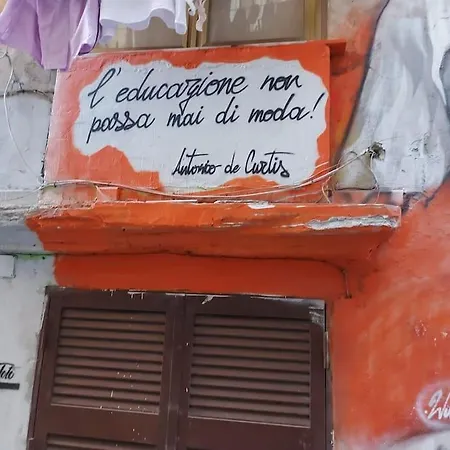 l'educazione non
passa mai di moda!
Antonio de Curtis